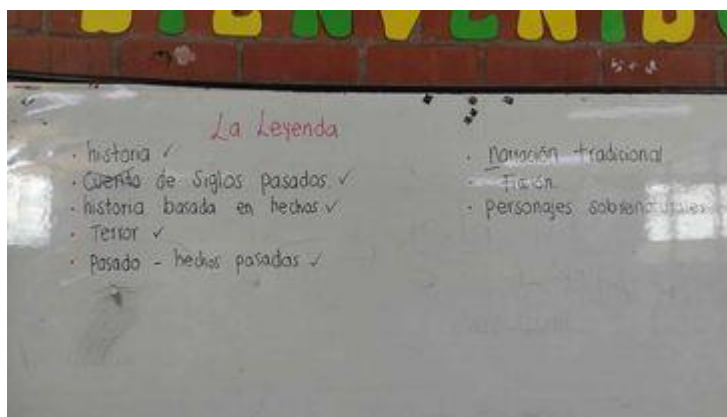 BIENVENIDO
La Leyenda
· historia ✓
· Cuento de Siglos pasados ✓
· historia basada en hechos ✓
· Terror ✓
· Pasado - hechos pasados ✓
· narración tradicional
· Ficción
· personajes sobrenaturales